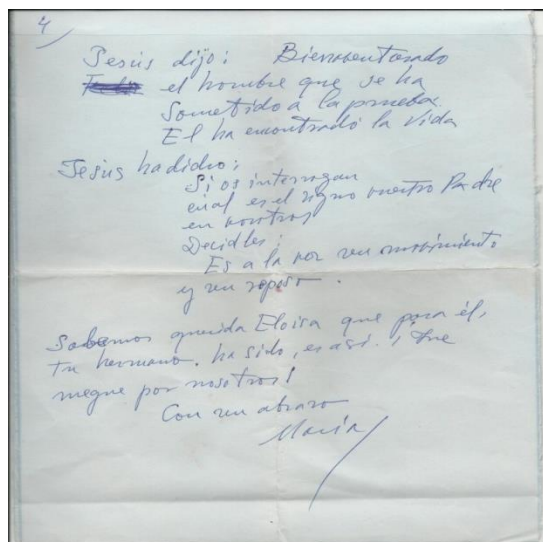 4
Jesús dijo: Bienaventurado
el hombre que se ha
Sometido a la prueba.
El ha encontrado la Vida
Jesus ha dicho:
Si os interrogan
cual es el signo vuestro Padre
en vosotros
Decidles:
Es a la vez un movimiento
y un reposo.
Sabemos querida Eloisa que para él,
Tu hermano. ha sido, es así. ¡Que
ruegue por nosotros!
Con un abrazo
María